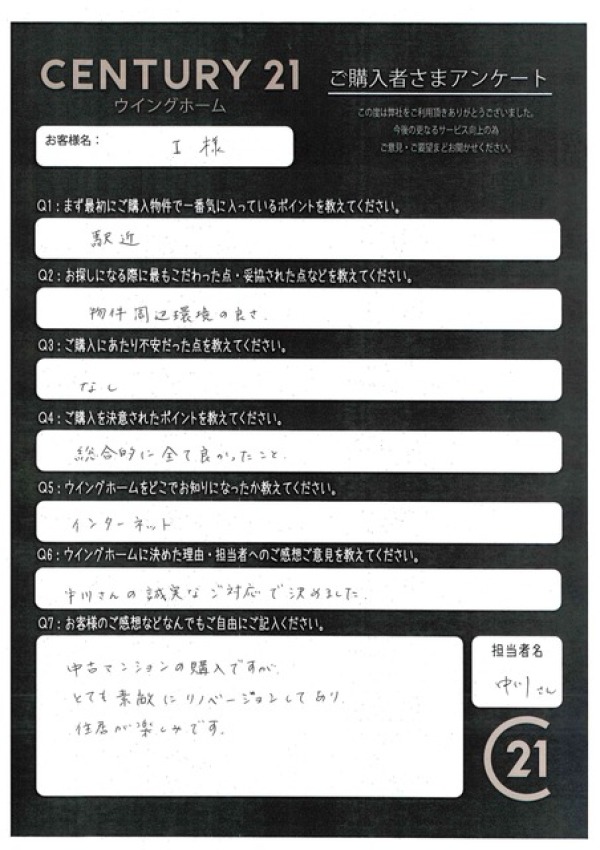 CENTURY 21
ウイングホーム
ご購入者さまアンケート
この度は弊社をご利用頂きありがとうございました。
今後の更なるサービス向上の為
ご意見・ご要望などお聞かせください。
お客様名： I 様
Q1：まず最初にご購入物件で一番気に入っているポイントを教えてください。
駅近
Q2：お探しになる際に最もこだわった点・妥協された点などを教えてください。
物件周辺環境の良さ.
Q3：ご購入にあたり不安だった点を教えてください。
なし
Q4：ご購入を決意されたポイントを教えてください。
総合的に全て良かったこと.
Q5：ウイングホームをどこでお知りになったか教えてください。
インターネット
Q6：ウイングホームに決めた理由・担当者へのご感想ご意見を教えてください。
中川さんの誠実なご対応で決めました.
Q7：お客様のご感想などなんでもご自由にご記入ください。
中古マンションの購入ですが.
とても素敵にリノベーションしてあり
住居が楽しみです.
担当者名
中川さん
C21